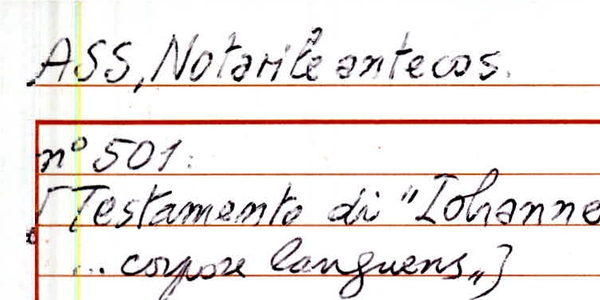 ASS, Notarile antecos.
n° 501.
[Testamento di "Iohanne
... corpore languens„]